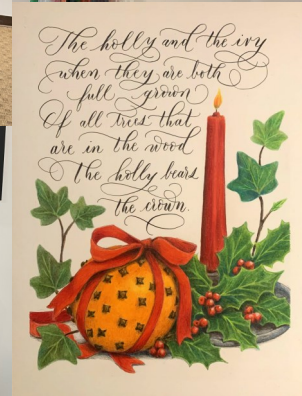 The holly and the ivy
when they are both
full grown
Of all trees that
are in the wood
The holly bears
the crown.